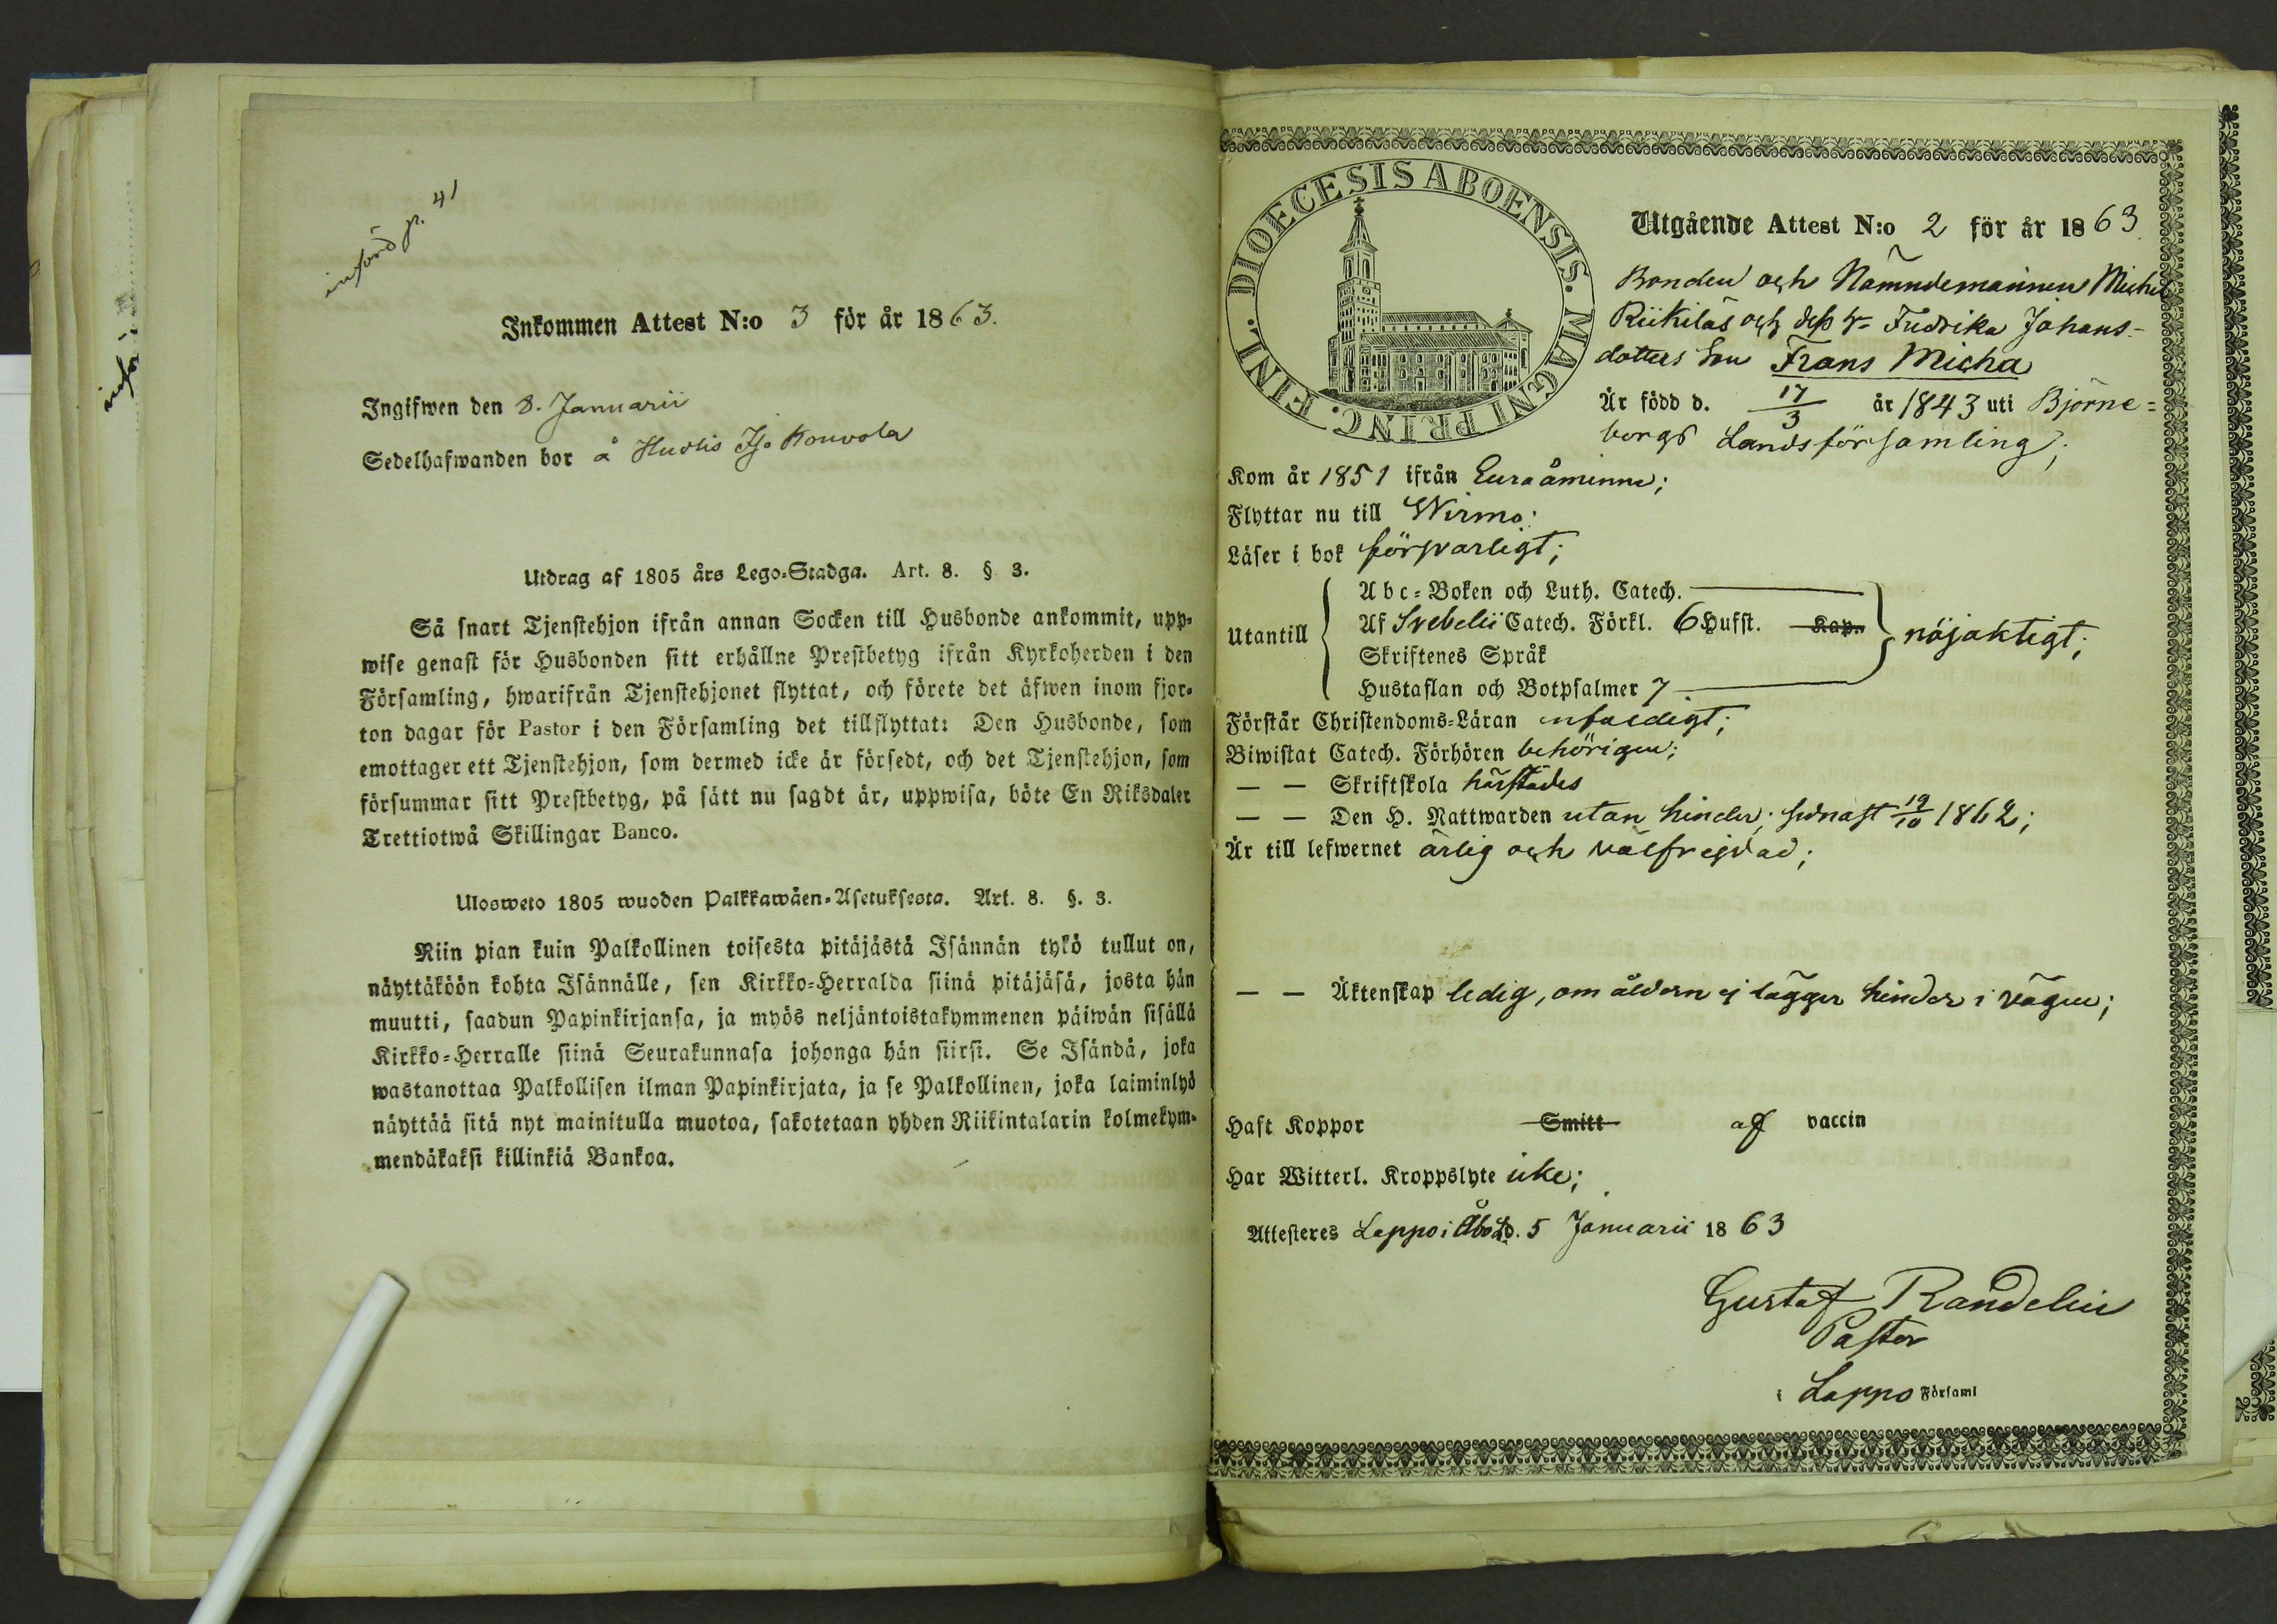 införd p. 41
Inkommen Attest N:o 3 för år 1863.
Ingifwen den 8. Januarii
Sedelhafwanden bor å Hurlis Iso Kouvola
Utdrag af 1805 års Lego-Stadga. Art. 8. § 3.
Så snart Tjenstehjon ifrån annan Socken till Husbonde ankommit, upp-
wise genast för Husbonden sitt erhållne Prestbetyg ifrån Kyrkoherden i den
Församling, hwarifrån Tjenstehjonet flyttat, och förete det äfwen inom fjor-
ton dagar för Pastor i den Församling det tillflyttat: Den Husbonde, som
emottager ett Tjenstehjon, som dermed icke är försedt, och det Tjenstehjon, som
försummar sitt Prestbetyg, på sätt nu sagdt är, uppwisa, böte En Riksdaler
Trettiotwå Skillingar Banco.
Ulosweto 1805 wuoden Palkkawäen-Asetuksesta. Art. 8. §. 3.
Niin pian kuin Palkollinen toisesta pitäjästä Isännän tykö tullut on,
näyttäköön kohta Isännälle, sen Kirkko-Herralda siinä pitäjäsä, josta hän
muutti, saadun Papinkirjansa, ja myös neljäntoistakymmenen päiwän sisällä
Kirkko-Herralle siinä Seurakunnasa johonga hän siirsi. Se Isändä, joka
wastanottaa Palkollisen ilman Papinkirjata, ja se Palkollinen, joka laiminlyö
näyttää sitä nyt mainitulla muotoa, sakotetaan yhden Riikintalarin kolmekym-
mendäkaksi killinkiä Bankoa.
DIOECESIS ABOENSIS. MAGNI PRINC. FINL.
Utgående Attest N:o 2 för år 1863
Bonden och Nämndemannen Michel
Riikilas och dess h. Fredrika Johans-
dotters son Frans Micha
Är född d. 17/3 år 1843 uti Björne-
borgs Landsförsamling;
Kom år 1851 ifrån Euraåminne;
Flyttar nu till Wirmo;
Läser i bok försvarligt;
Utantill
Abc-Boken och Luth. Catech.
Af Svebelii Catech. Förkl. 6 Hufst. Kap.
Skriftenes Språk
Hustaflan och Botpsalmer 7
nöjaktigt;
Förstår Christendoms-Läran enfaldigt;
Biwistat Catech. Förhören behörigen;
— — Skriftskola härstädes
— — Den H. Nattwarden utan hinder; sednast 19/10 1862;
Är till lefwernet ärlig och välfrejdad;
— — Äktenskap ledig, om åldern ej lägger hinder i vägen;
Haft Koppor Smitt af vaccin
Har Witterl. Kroppslyte icke;
Attesteres Lappo i Åbo L. d. 5 Januarii 1863
Gustaf Randelin
Pastor
i Lappo Församl